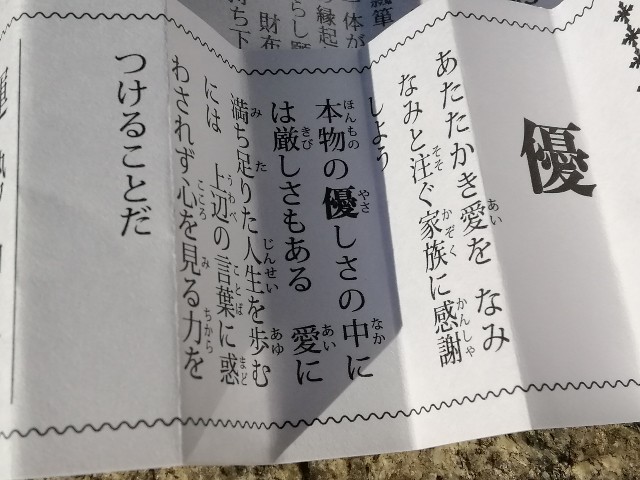 優
あたたかき愛を なみ
なみと注ぐ家族に感謝
しよう
本物の優しさの中に
は厳しさもある 愛に
満ち足りた人生を歩む
には 上辺の言葉に惑
わされず心を見る力を
つけることだ